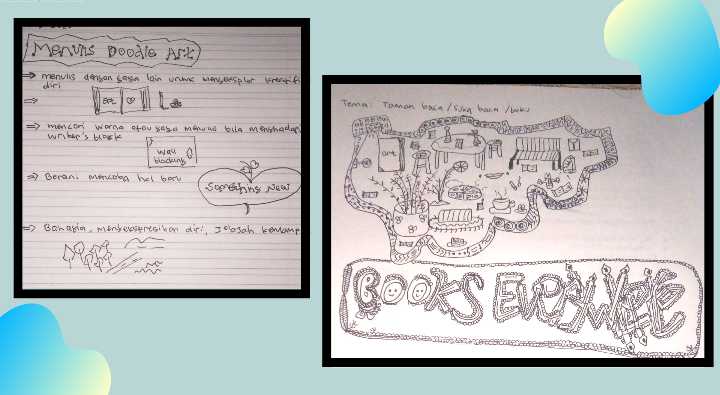 Menulis Doodle Art
⇒ menulis dengan gaya lain untuk mengeksplor kreatifi
diri
⇒
⇒ mencari warna atau gaya menulis bila menghadapi
writer's block
wall
blocking
⇒ Berani mencoba hal baru
Something New
⇒ Bahagia, mengekspresikan diri, Jelajah kemamp
Tema: Taman baca / suka baca / buku
art
BOOKS EVERYWHERE